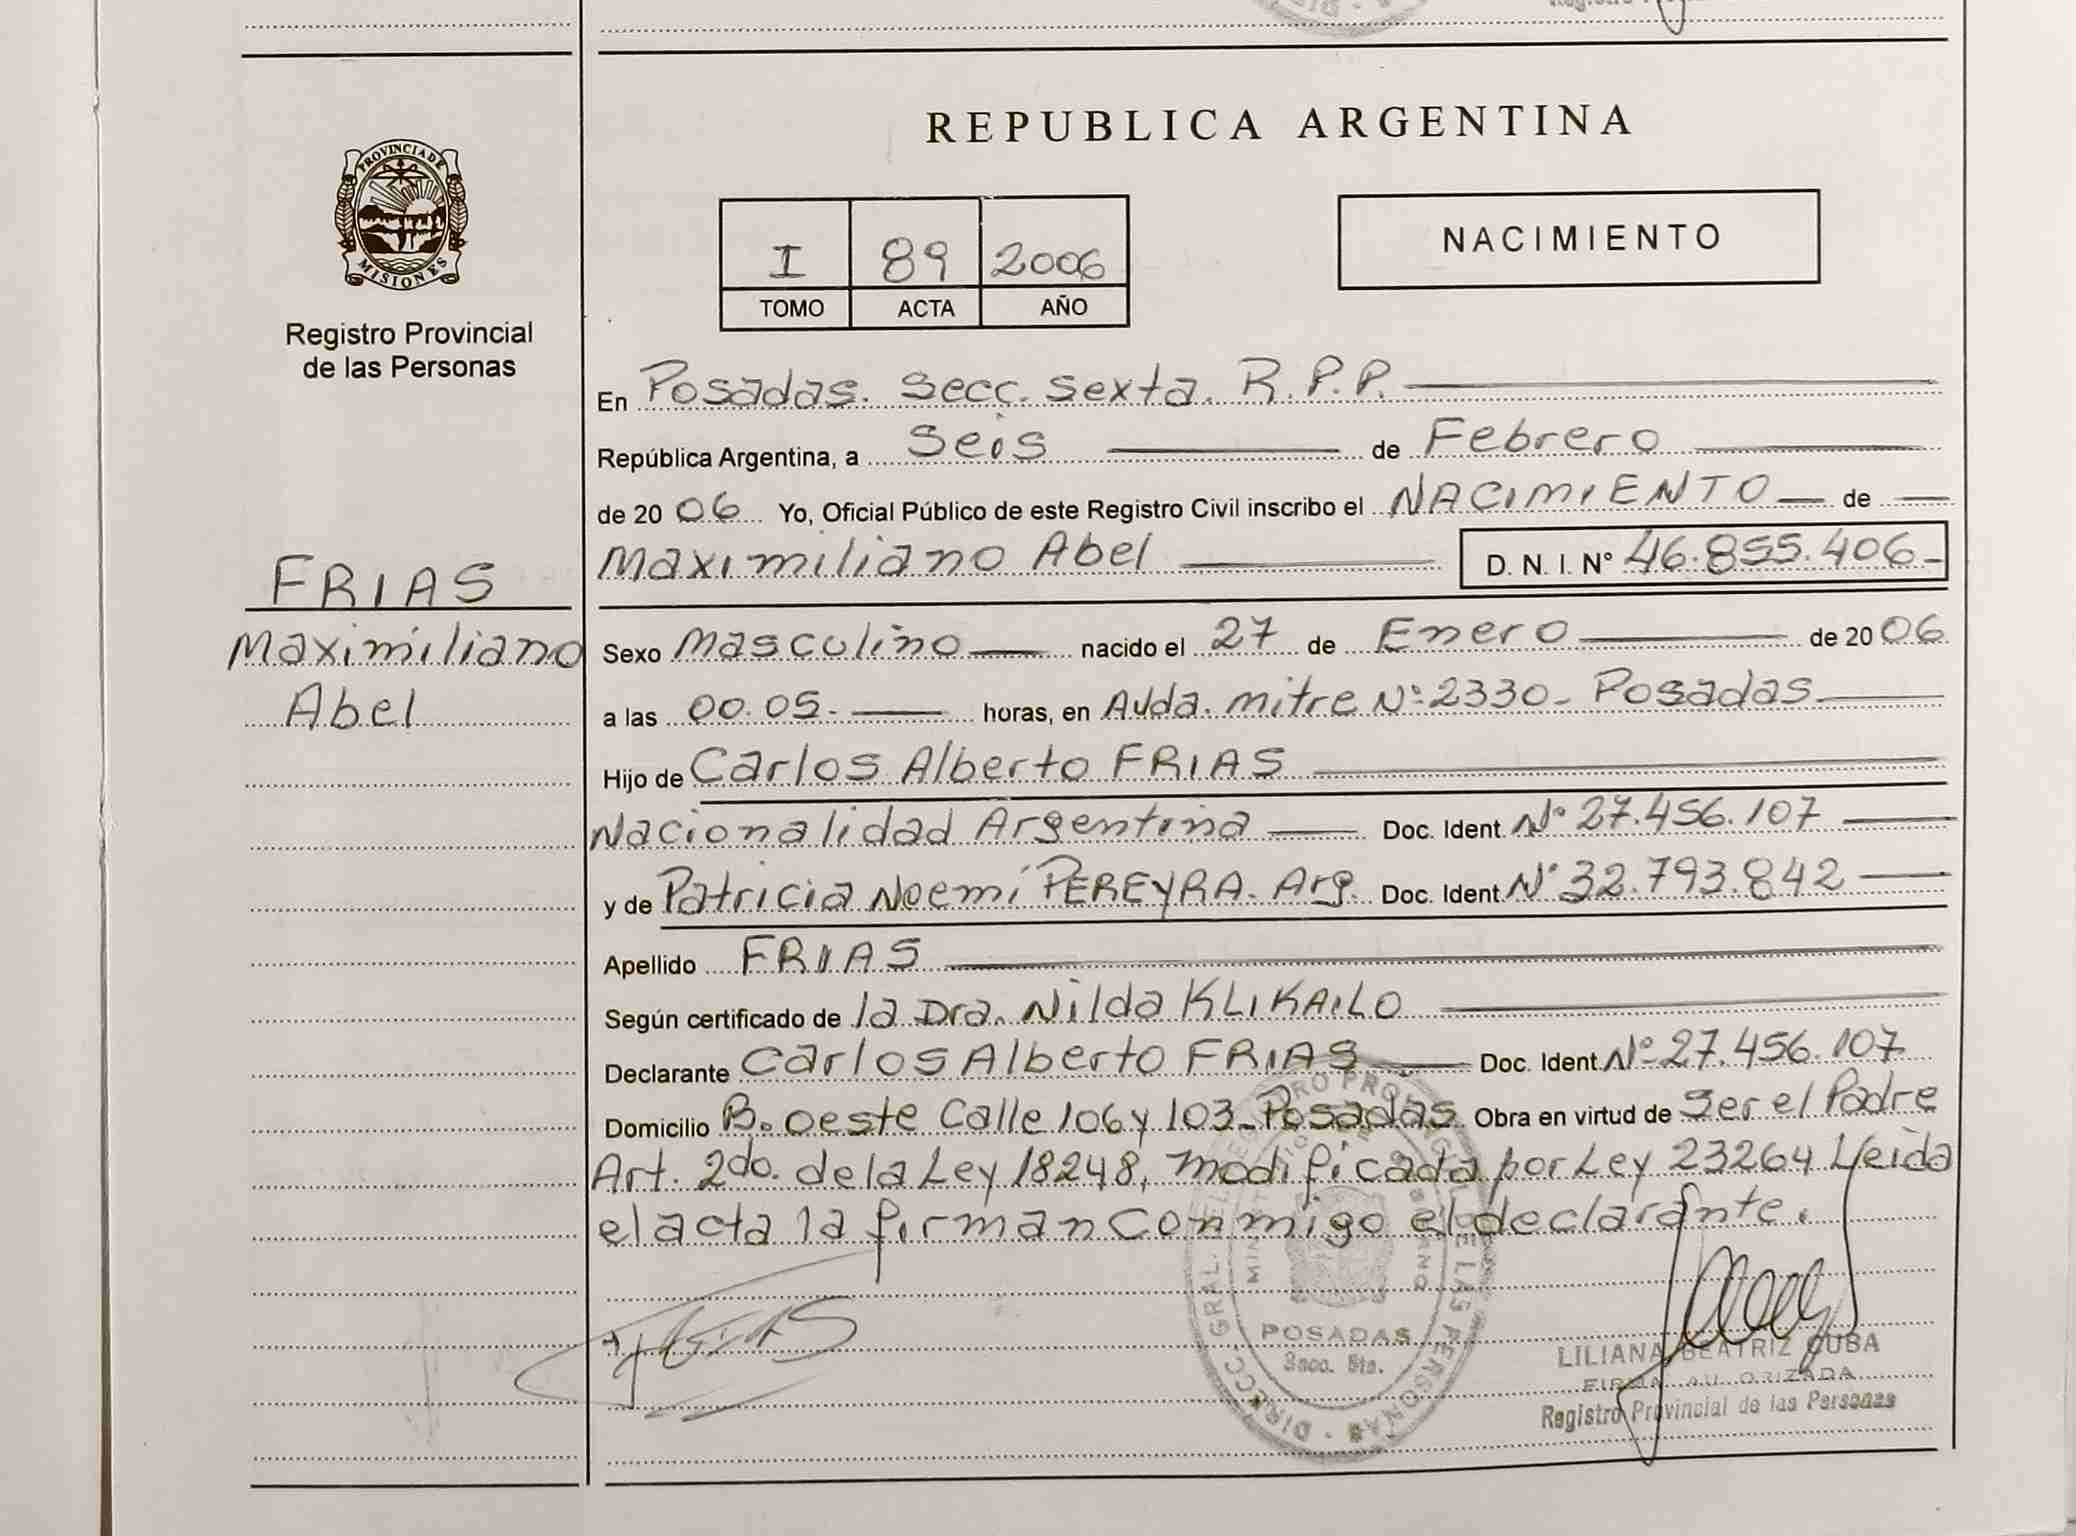 PROVINCIA DE
MISIONES
Registro Provincial
de las Personas
FRIAS
Maximiliano
Abel
REPUBLICA ARGENTINA
I 89 2006
TOMO ACTA AÑO
NACIMIENTO
En Posadas. Secc. Sexta. R.P.P.
República Argentina, a Seis de Febrero
de 2006 Yo, Oficial Público de este Registro Civil inscribo el NACIMIENTO de
Maximiliano Abel D. N. I. Nº 46.855.406-
Sexo Masculino nacido el 27 de Enero de 2006
a las 00.05. horas, en Avda. mitre Nº 2330- Posadas
Hijo de Carlos Alberto FRIAS
Nacionalidad Argentina Doc. Ident. Nº 27.456.107
y de Patricia Noemí PEREYRA. Arg. Doc. Ident. Nº 32.793.842
Apellido FRIAS
Según certificado de la Dra. Nilda KLIKAILO
Declarante Carlos Alberto FRIAS Doc. Ident. Nº 27.456.107
Domicilio B. Oeste Calle 106 y 103- Posadas Obra en virtud de Ser el Padre
Art. 2do. de la Ley 18248, modificada por Ley 23264 Leida
el acta la firman conmigo el declarante.
FRIAS
POSADAS
Secc. 6ta.
LILIANA BEATRIZ CUBA
FIRMA AUTORIZADA
Registro Provincial de las Personas